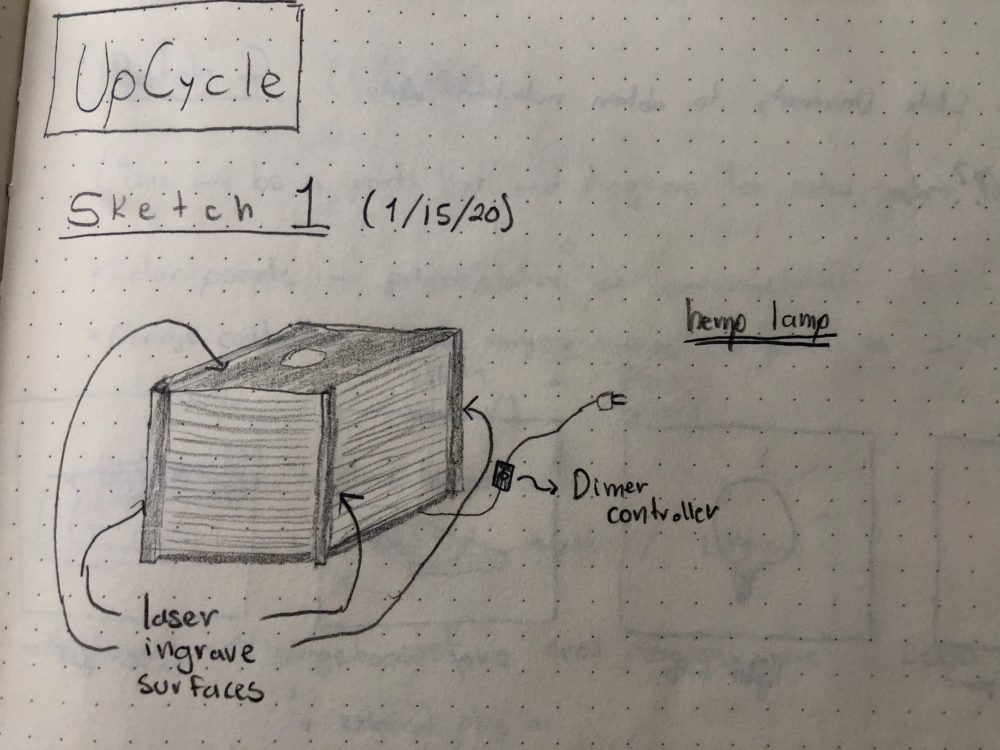 UpCycle
Sketch 1 (1/15/20)
hemp lamp
Dimer
controller
laser
ingrave
surfaces